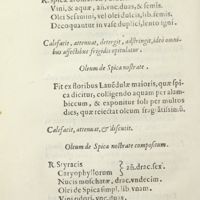 Vini, & aquæ, añ. vnc. duas, & semis.
Olei Sesamini, vel olei dulcis, lib. semis.
Decoquantur in vase duplici, lento igni.
Calefacit, attenuat, detergit, adstringit, ideò omni-
bus affectibus frigidis opitulatur.
Oleum de Spica nostrate.
Fit ex floribus Lauẽdulæ maioris, quæ spi-
ca dicitur, colligendo aquam per alam-
biccum, & exponitur soli per multos
dies, quæ reiectat oleum fragãtissimũ.
Calefacit, attenuat, & discutit.
Oleum de Spica nostrate compositum.
R. Styracis
Caryophyllorum } añ. drac. sex.
Nucis moschatæ, drac. vndecim.
Olei de Spica simpl. lib. vnam.